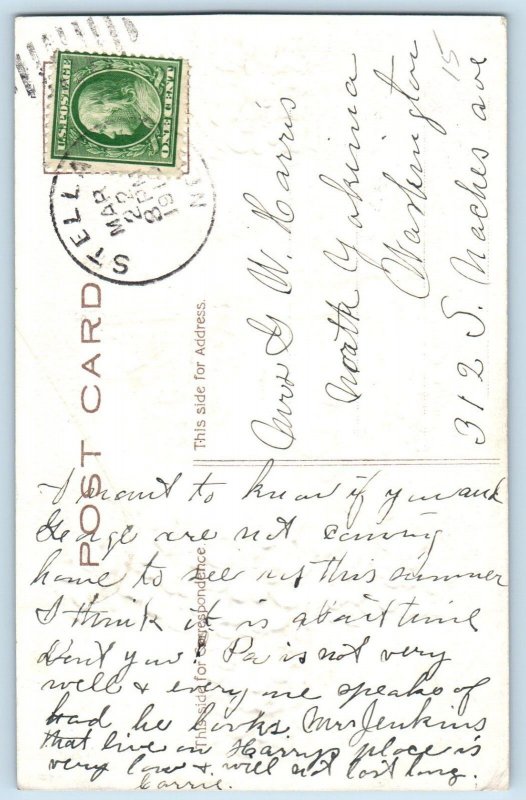 U.S. POSTAGE
ONE CENT
STELLA
MAR
22
8 PM
POST CARD
This side for Address.
Mrs G W. Harris
North Yakima
Washington
15
312 S. Naches ave
This side for Correspondence
I want to know if you and
Geoge are not coming
home to see us this summer
I think it is about time
dont you. Pa is not very
well & every one speaks of
bad he looks. Mrs Jenkins
that live on Harrys place is
very low & will not last long.
Carrie.